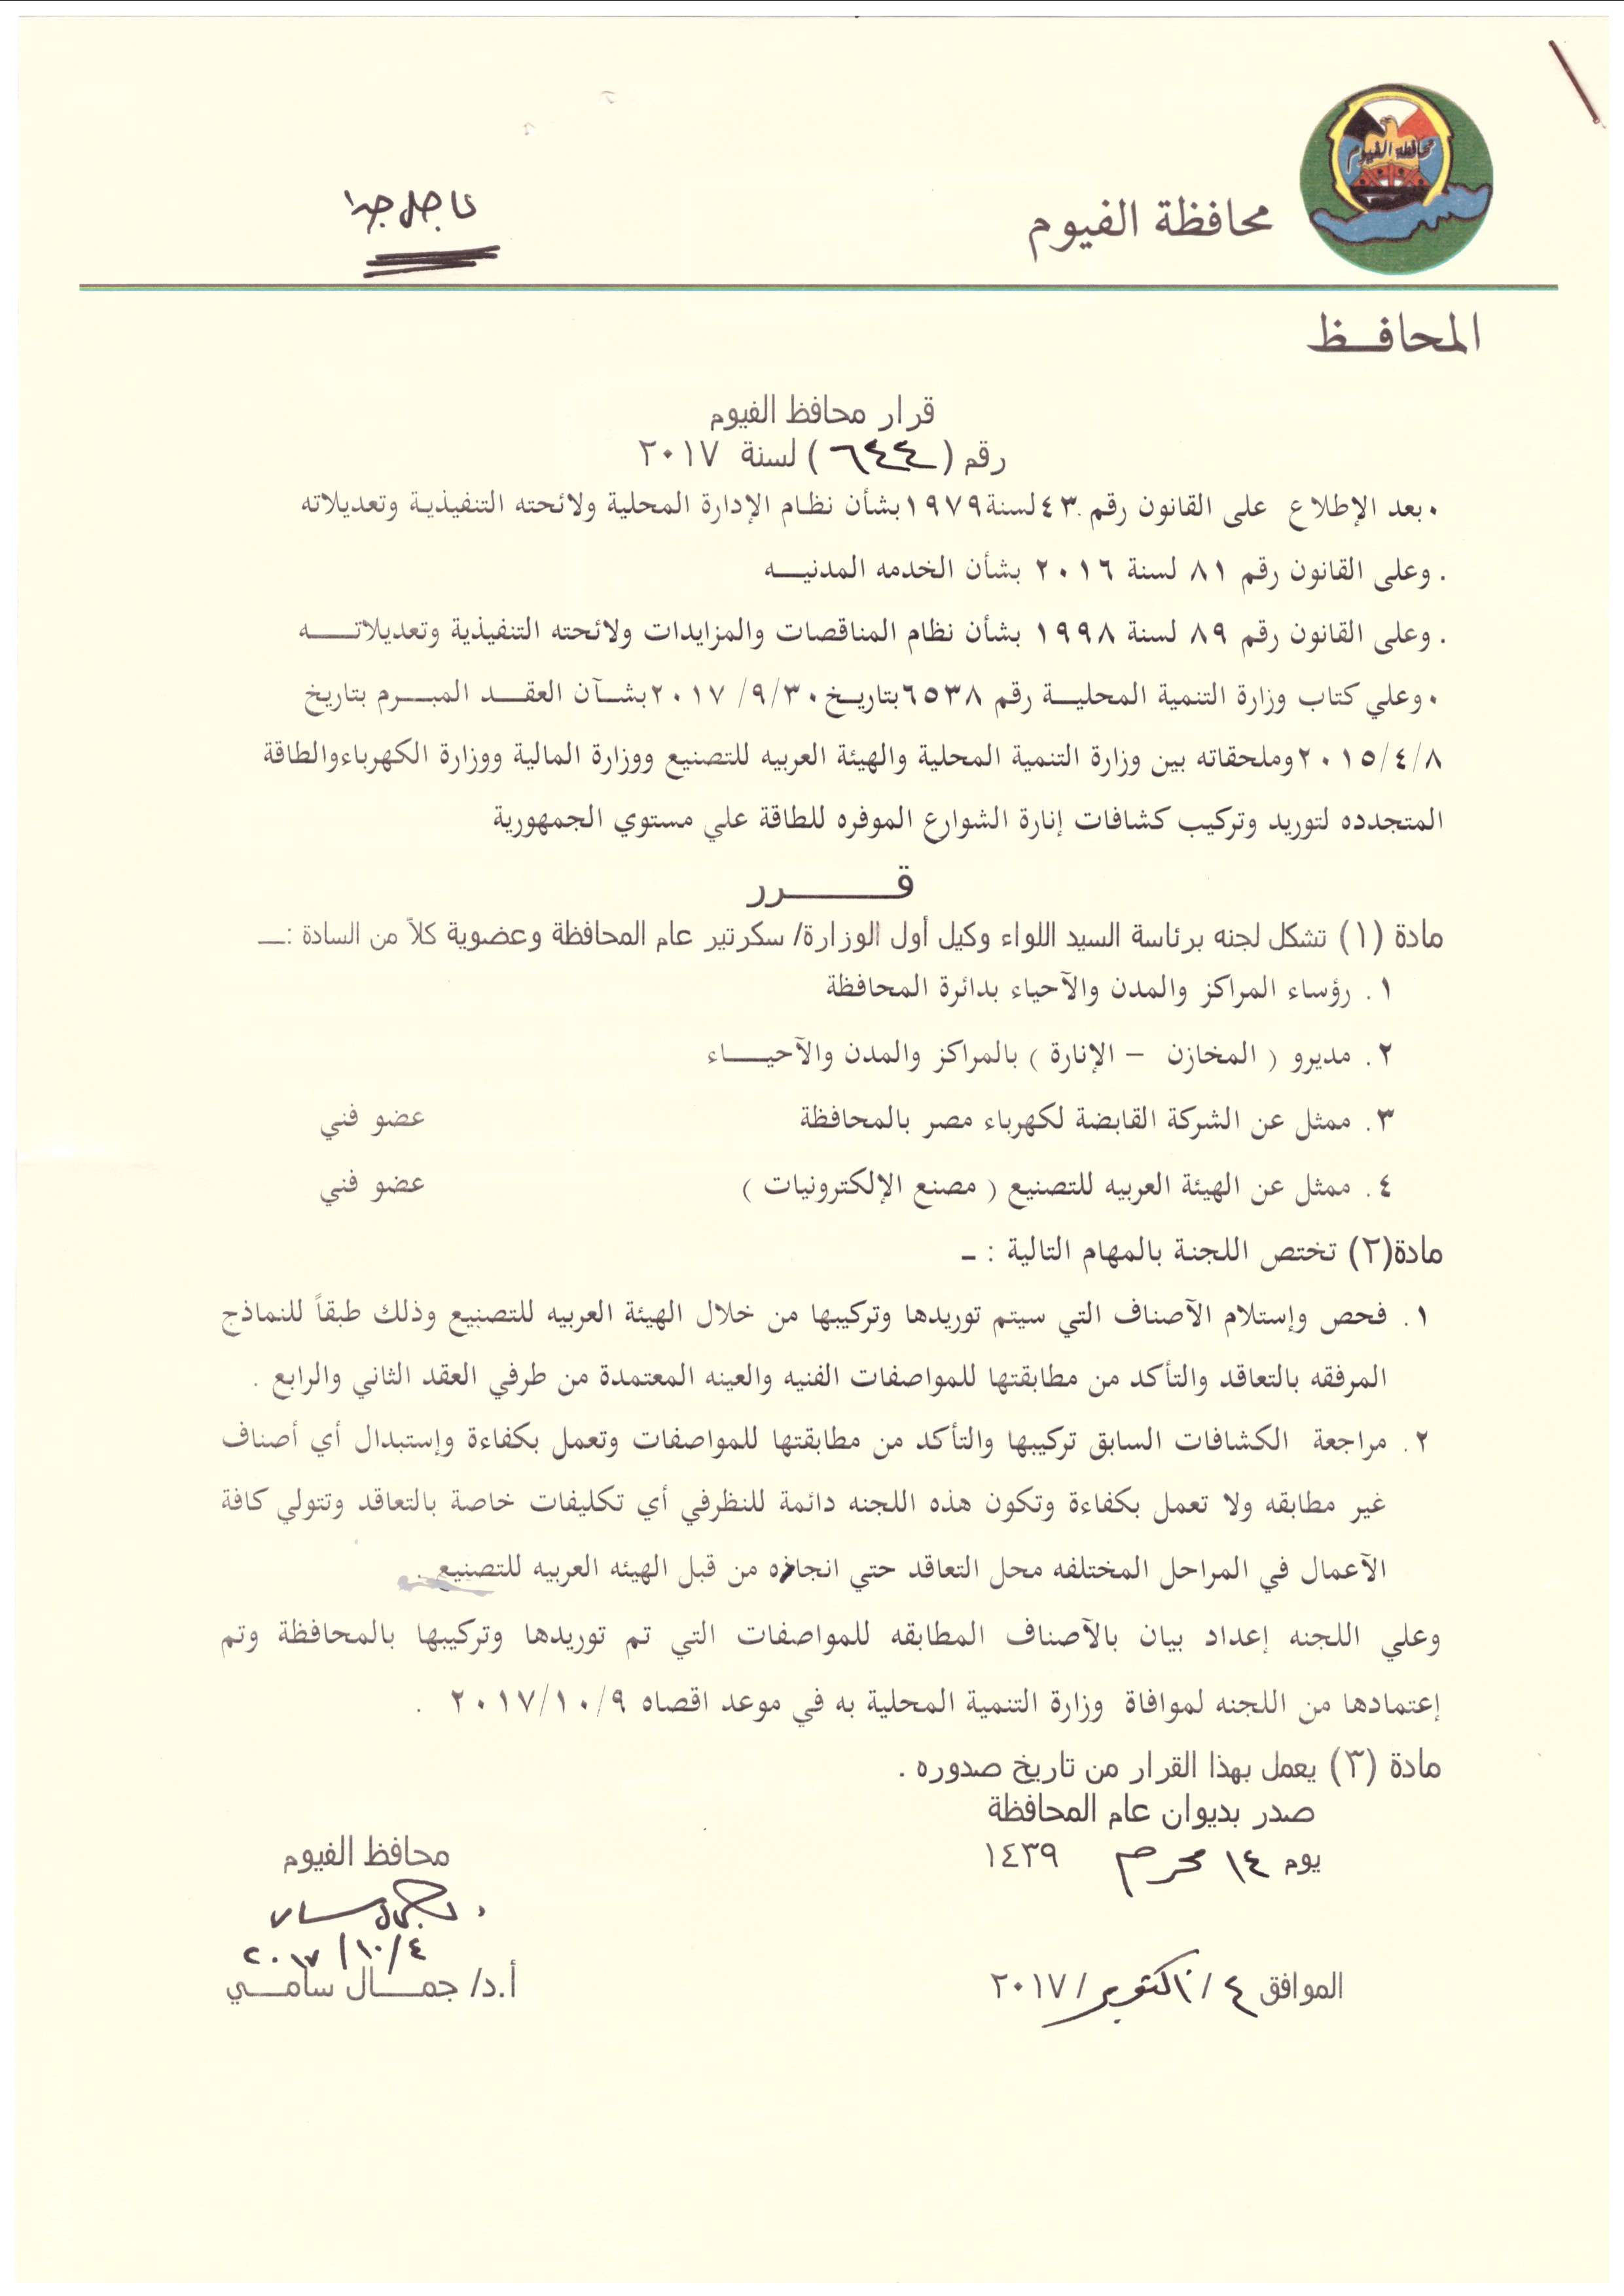 محافظة الفيوم
محافظة الفيوم
عاجل جدا
المحافــظ
قرار محافظ الفيوم
رقم (٦٤٤) لسنة ٢٠١٧
٠ بعد الإطلاع على القانون رقم ٤٣ لسنة ١٩٧٩ بشأن نظام الإدارة المحلية ولائحته التنفيذية وتعديلاته
. وعلى القانون رقم ٨١ لسنة ٢٠١٦ بشأن الخدمه المدنيــه
. وعلى القانون رقم ٨٩ لسنة ١٩٩٨ بشأن نظام المناقصات والمزايدات ولائحته التنفيذية وتعديلاتــه
٠ وعلي كتاب وزارة التنمية المحليــة رقم ٦٥٣٨ بتاريـخ ٢٠١٧/٩/٣٠ بشــآن العقــد المبــرم بتاريخ
٢٠١٥/٤/٨ وملحقاته بين وزارة التنمية المحلية والهيئة العربيه للتصنيع ووزارة المالية ووزارة الكهرباءوالطاقة
المتجدده لتوريد وتركيب كشافات إنارة الشوارع الموفره للطاقة علي مستوي الجمهورية
قــــــرر
مادة (١) تشكل لجنه برئاسة السيد اللواء وكيل أول الوزارة/ سكرتير عام المحافظة وعضوية كلاً من السادة :ــ
١. رؤساء المراكز والمدن والآحياء بدائرة المحافظة
٢. مديرو ( المخازن – الإنارة ) بالمراكز والمدن والآحيــــاء
٣. ممثل عن الشركة القابضة لكهرباء مصر بالمحافظة عضو فني
٤. ممثل عن الهيئة العربيه للتصنيع ( مصنع الإلكترونيات ) عضو فني
مادة(٢) تختص اللجنة بالمهام التالية : ـ
١. فحص وإستلام الآصناف التي سيتم توريدها وتركيبها من خلال الهيئة العربيه للتصنيع وذلك طبقاً للنماذج
المرفقه بالتعاقد والتأكد من مطابقتها للمواصفات الفنيه والعينه المعتمدة من طرفي العقد الثاني والرابع .
٢. مراجعة الكشافات السابق تركيبها والتأكد من مطابقتها للمواصفات وتعمل بكفاءة وإستبدال أي أصناف
غير مطابقه ولا تعمل بكفاءة وتكون هذه اللجنه دائمة للنظرفي أي تكليفات خاصة بالتعاقد وتتولي كافة
الآعمال في المراحل المختلفه محل التعاقد حتي انجازه من قبل الهيئه العربيه للتصنيع .
وعلي اللجنه إعداد بيان بالآصناف المطابقه للمواصفات التي تم توريدها وتركيبها بالمحافظة وتم
إعتمادها من اللجنه لموافاة وزارة التنمية المحلية به في موعد اقصاه ٢٠١٧/١٠/٩ .
مادة (٣) يعمل بهذا القرار من تاريخ صدوره .
صدر بديوان عام المحافظة
يوم ١٤ محرم ١٤٣٩
الموافق ٤ / اكتوبر / ٢٠١٧
محافظ الفيوم
٢٠١٧/١٠/٤
أ.د/ جمــــال سامــــي